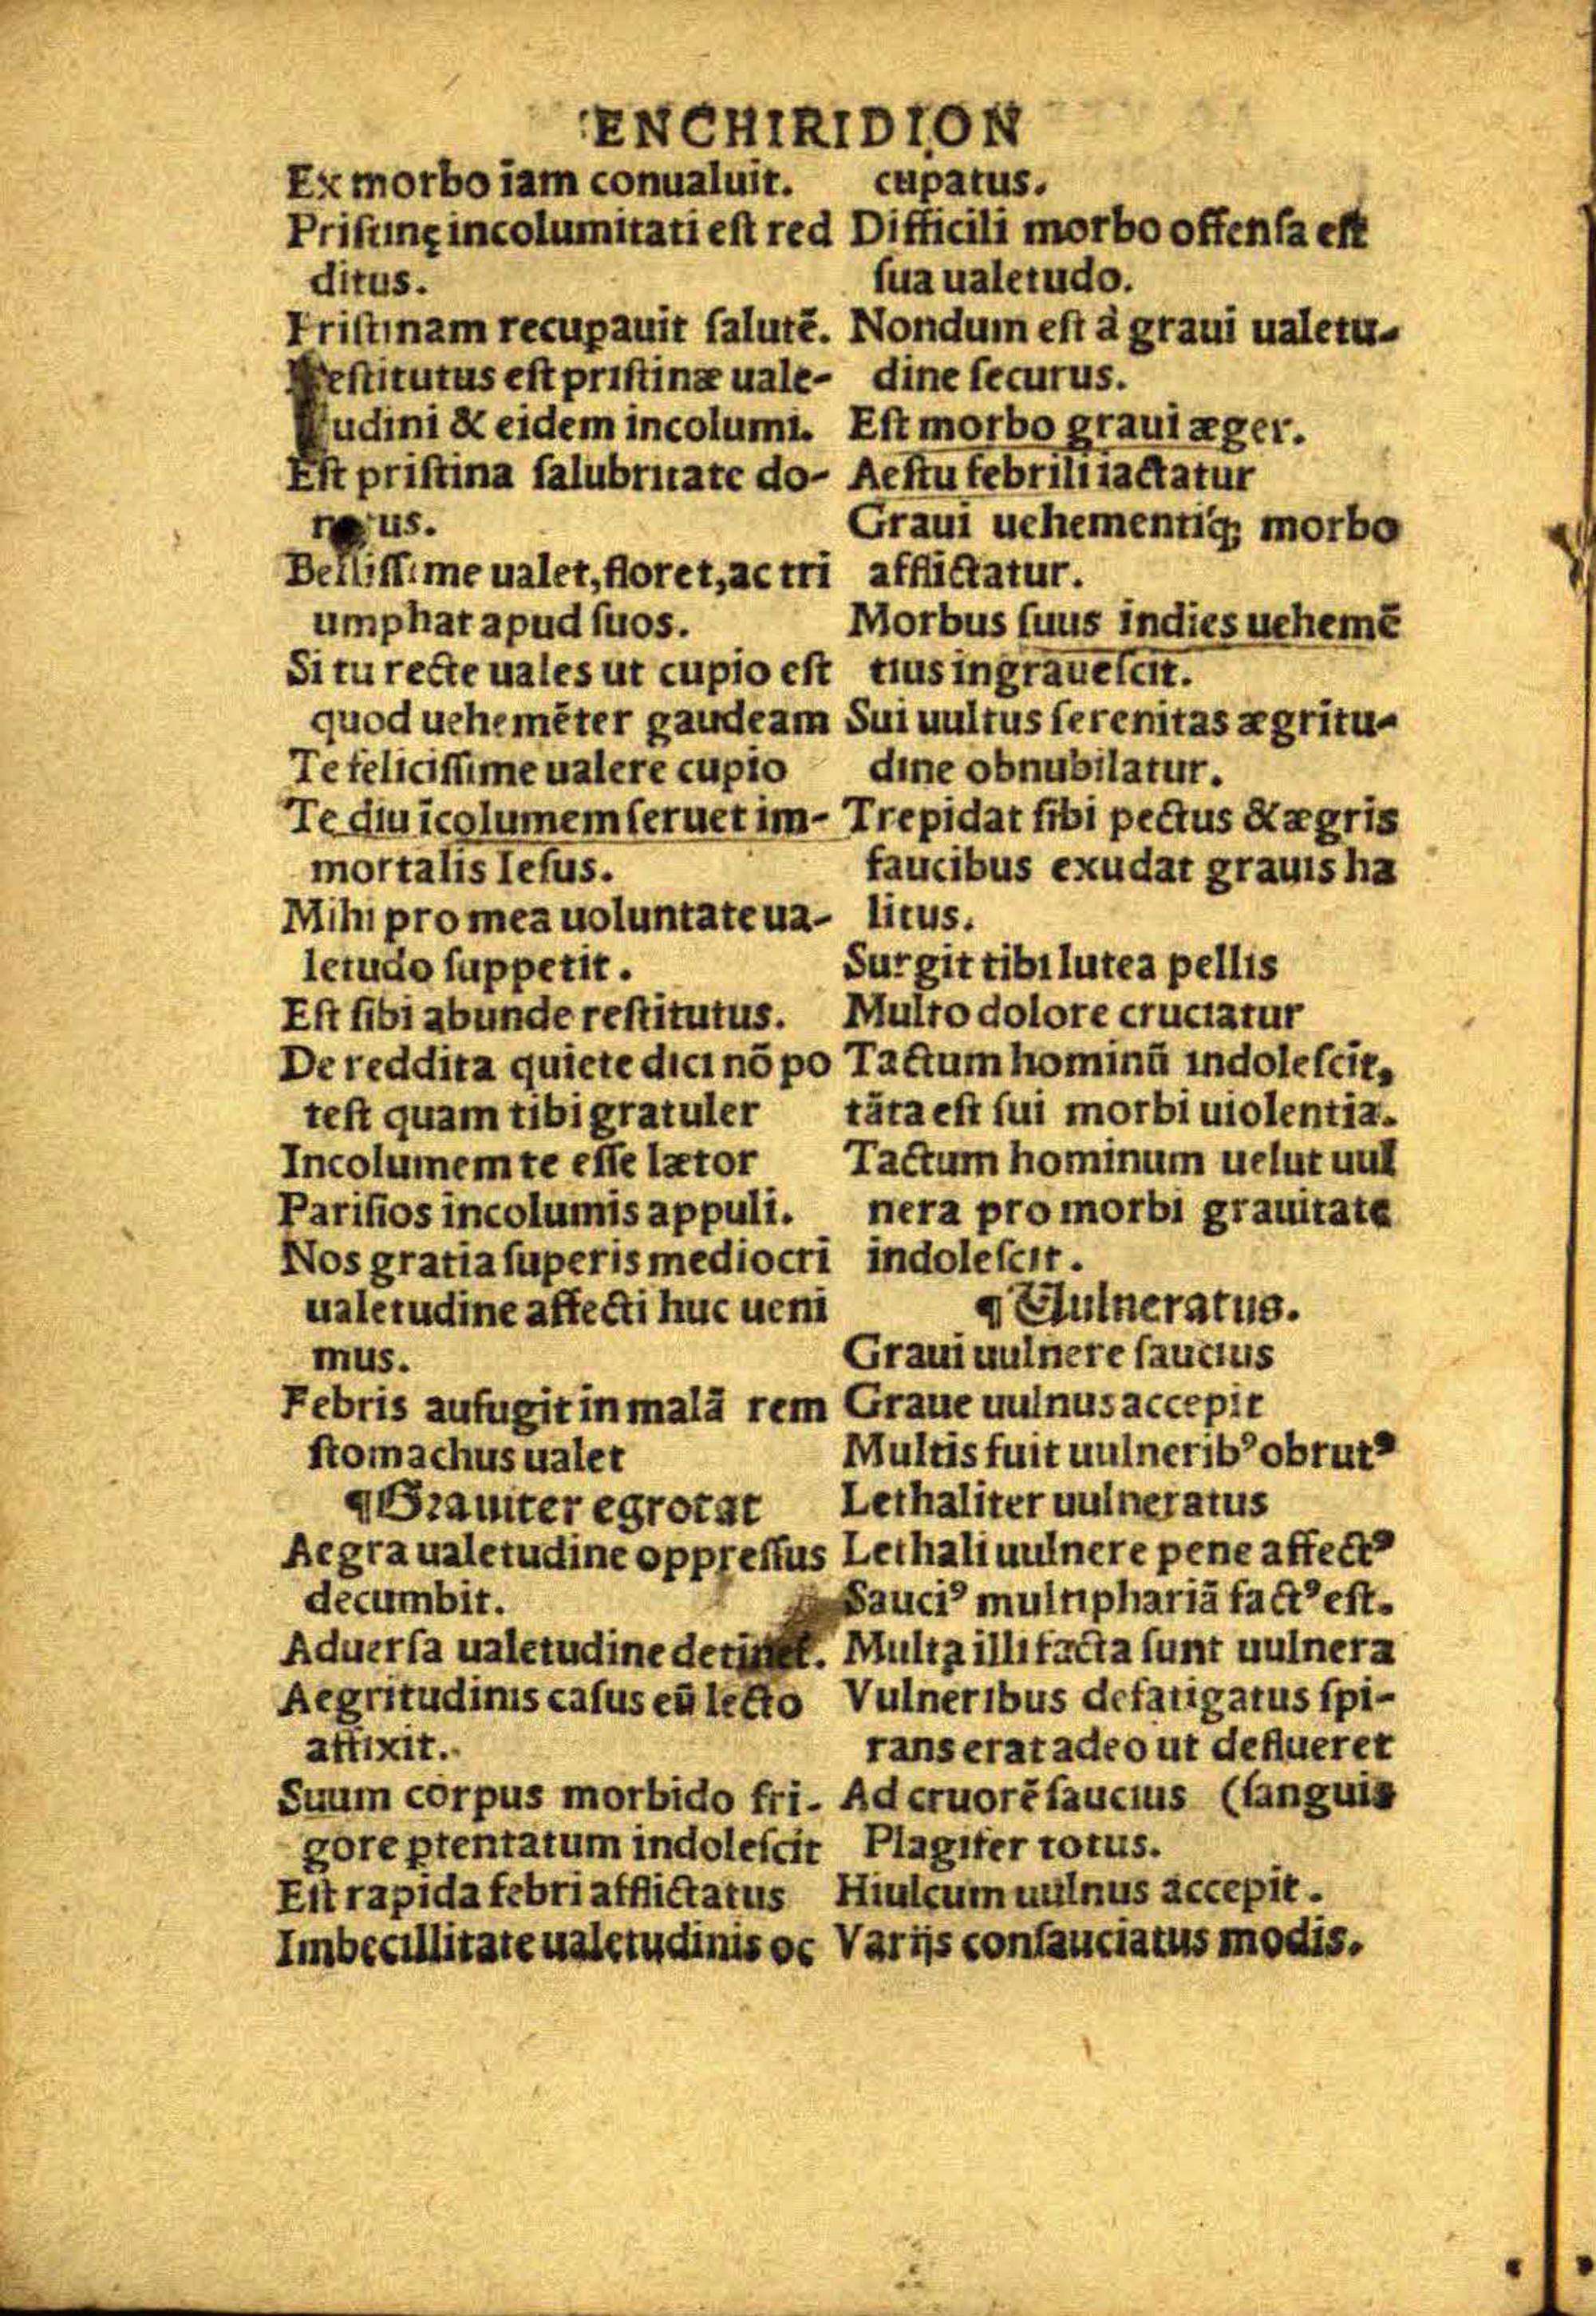 ENCHIRIDION
Ex morbo iam conualuit.
Pristinę incolumitati est red
ditus.
Pristinam recuꝑauit salutē.
Restitutus est pristinæ uale-
tudini & eidem incolumi.
Est pristina salubritate do-
natus.
Bellissime ualet, floret, ac tri
umphat apud suos.
Si tu recte uales ut cupio est
quod uehemēter gaudeam
Te felicissime ualere cupio
Te diu īcolumem seruet im-
mortalis Iesus.
Mihi pro mea uoluntate ua-
letudo suppetit.
Est sibi abunde restitutus.
De reddita quiete dici nō po
test quam tibi gratuler
Incolumem te esse lætor
Parisios incolumis appuli.
Nos gratia superis mediocri
ualetudine affecti huc ueni
mus.
Febris aufugit in malā rem
stomachus ualet
¶ Grauiter egrotat
Aegra ualetudine oppressus
decumbit.
Aduersa ualetudine detinet.
Aegritudinis casus eū lecto
affixit.
Suum corpus morbido fri-
gore ꝑtentatum indolescit
Est rapida febri afflictatus
Imbecillitate ualetudinis oc
cupatus.
Difficili morbo offensa est
sua ualetudo.
Nondum est à graui ualetu-
dine securus.
Est morbo graui æger.
Aestu febrili iactatur
Graui uehementiq́; morbo
afflictatur.
Morbus suus indies uehemē
tius ingrauescit.
Sui uultus serenitas ægritu-
dine obnubilatur.
Trepidat sibi pectus & ægris
faucibus exudat grauis ha
litus.
Surgit tibi lutea pellis
Multo dolore cruciatur
Tactum hominū indolescit,
tāta est sui morbi uiolentia.
Tactum hominum uelut uul
nera pro morbi grauitate
indolescit.
¶ Vulneratus.
Graui uulnere saucius
Graue uulnus accepit
Multis fuit uulneribꝰ obrutꝰ
Lethaliter uulneratus
Lethali uulnere pene affectꝰ
Sauciꝰ multiphariā factꝰ est.
Multa illi facta sunt uulnera
Vulneribus defatigatus spi-
rans erat adeo ut deflueret
Ad cruorē saucius (sanguis
Plagifer totus.
Hiulcum uulnus accepit.
Varijs consauciatus modis.